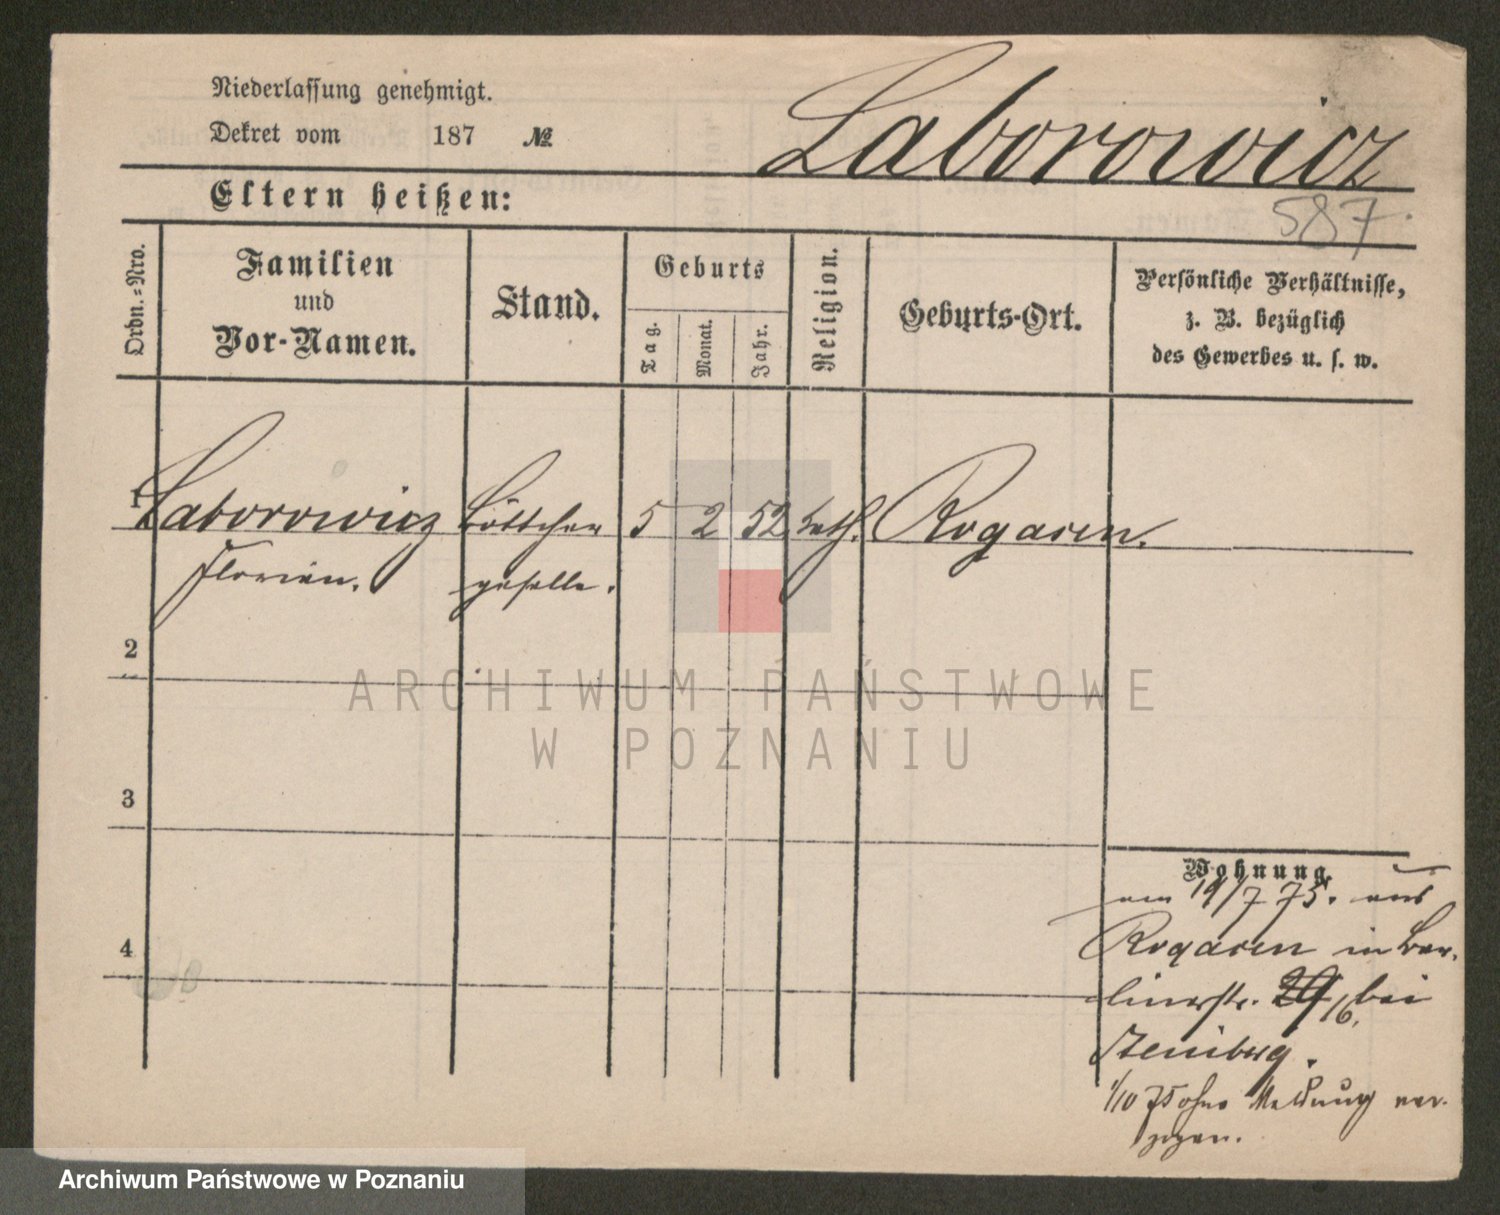 Niederlassung genehmigt.
Dekret vom 187 №
Laborowicz
Eltern heißen:
587.
Ordn.-Nro.
Familien
und
Vor-Namen.
Stand.
Geburts
Tag.
Monat.
Jahr.
Religion.
Geburts-Ort.
Persönliche Verhältnisse,
z. B. bezüglich
des Gewerbes u. s. w.
1 Laborowicz Böttcher 5 2 52 kath. Rogasen.
Florian. geselle.
2
3
4
Wohnung
am 19/7 75. aus
Rogasen in Ber-
linerstr. 16, bei
Steinberg.
1/10 75 ohne Meldung ver-
zogen.
ARCHIWUM PAŃSTWOWE
W POZNANIU
Archiwum Państwowe w Poznaniu